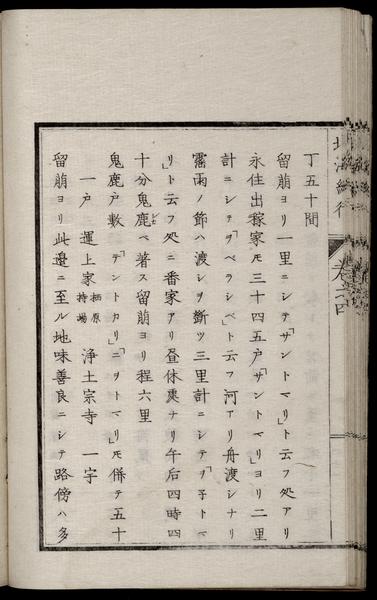 丁五十間
留萠ヨリ一里ニシテ「サントマリ」ト云フ処アリ
永住出稼家モ三十四五戸「サントマリ」ヨリ二里
計ニシテ「ヲベラシベ」ト云フ河アリ舟渡シナリ
霖雨ノ節ハ渡シヲ斷ツ三里計ニシテ「ヲ子トマ
リ」ト云フ処ニ番家アリ昼休裏ナリ午后四時四
十分鬼鹿ヘ著ス留萠ヨリ程六里
鬼鹿戸數「テントカリ」「ニヲトマリ」モ併テ五十
一戸 運上家 栖原持場 浄土宗寺 一宇
留萠ヨリ此邉ニ至ル地味善良ニシテ路傍ハ多
北海紀行 巻六 四